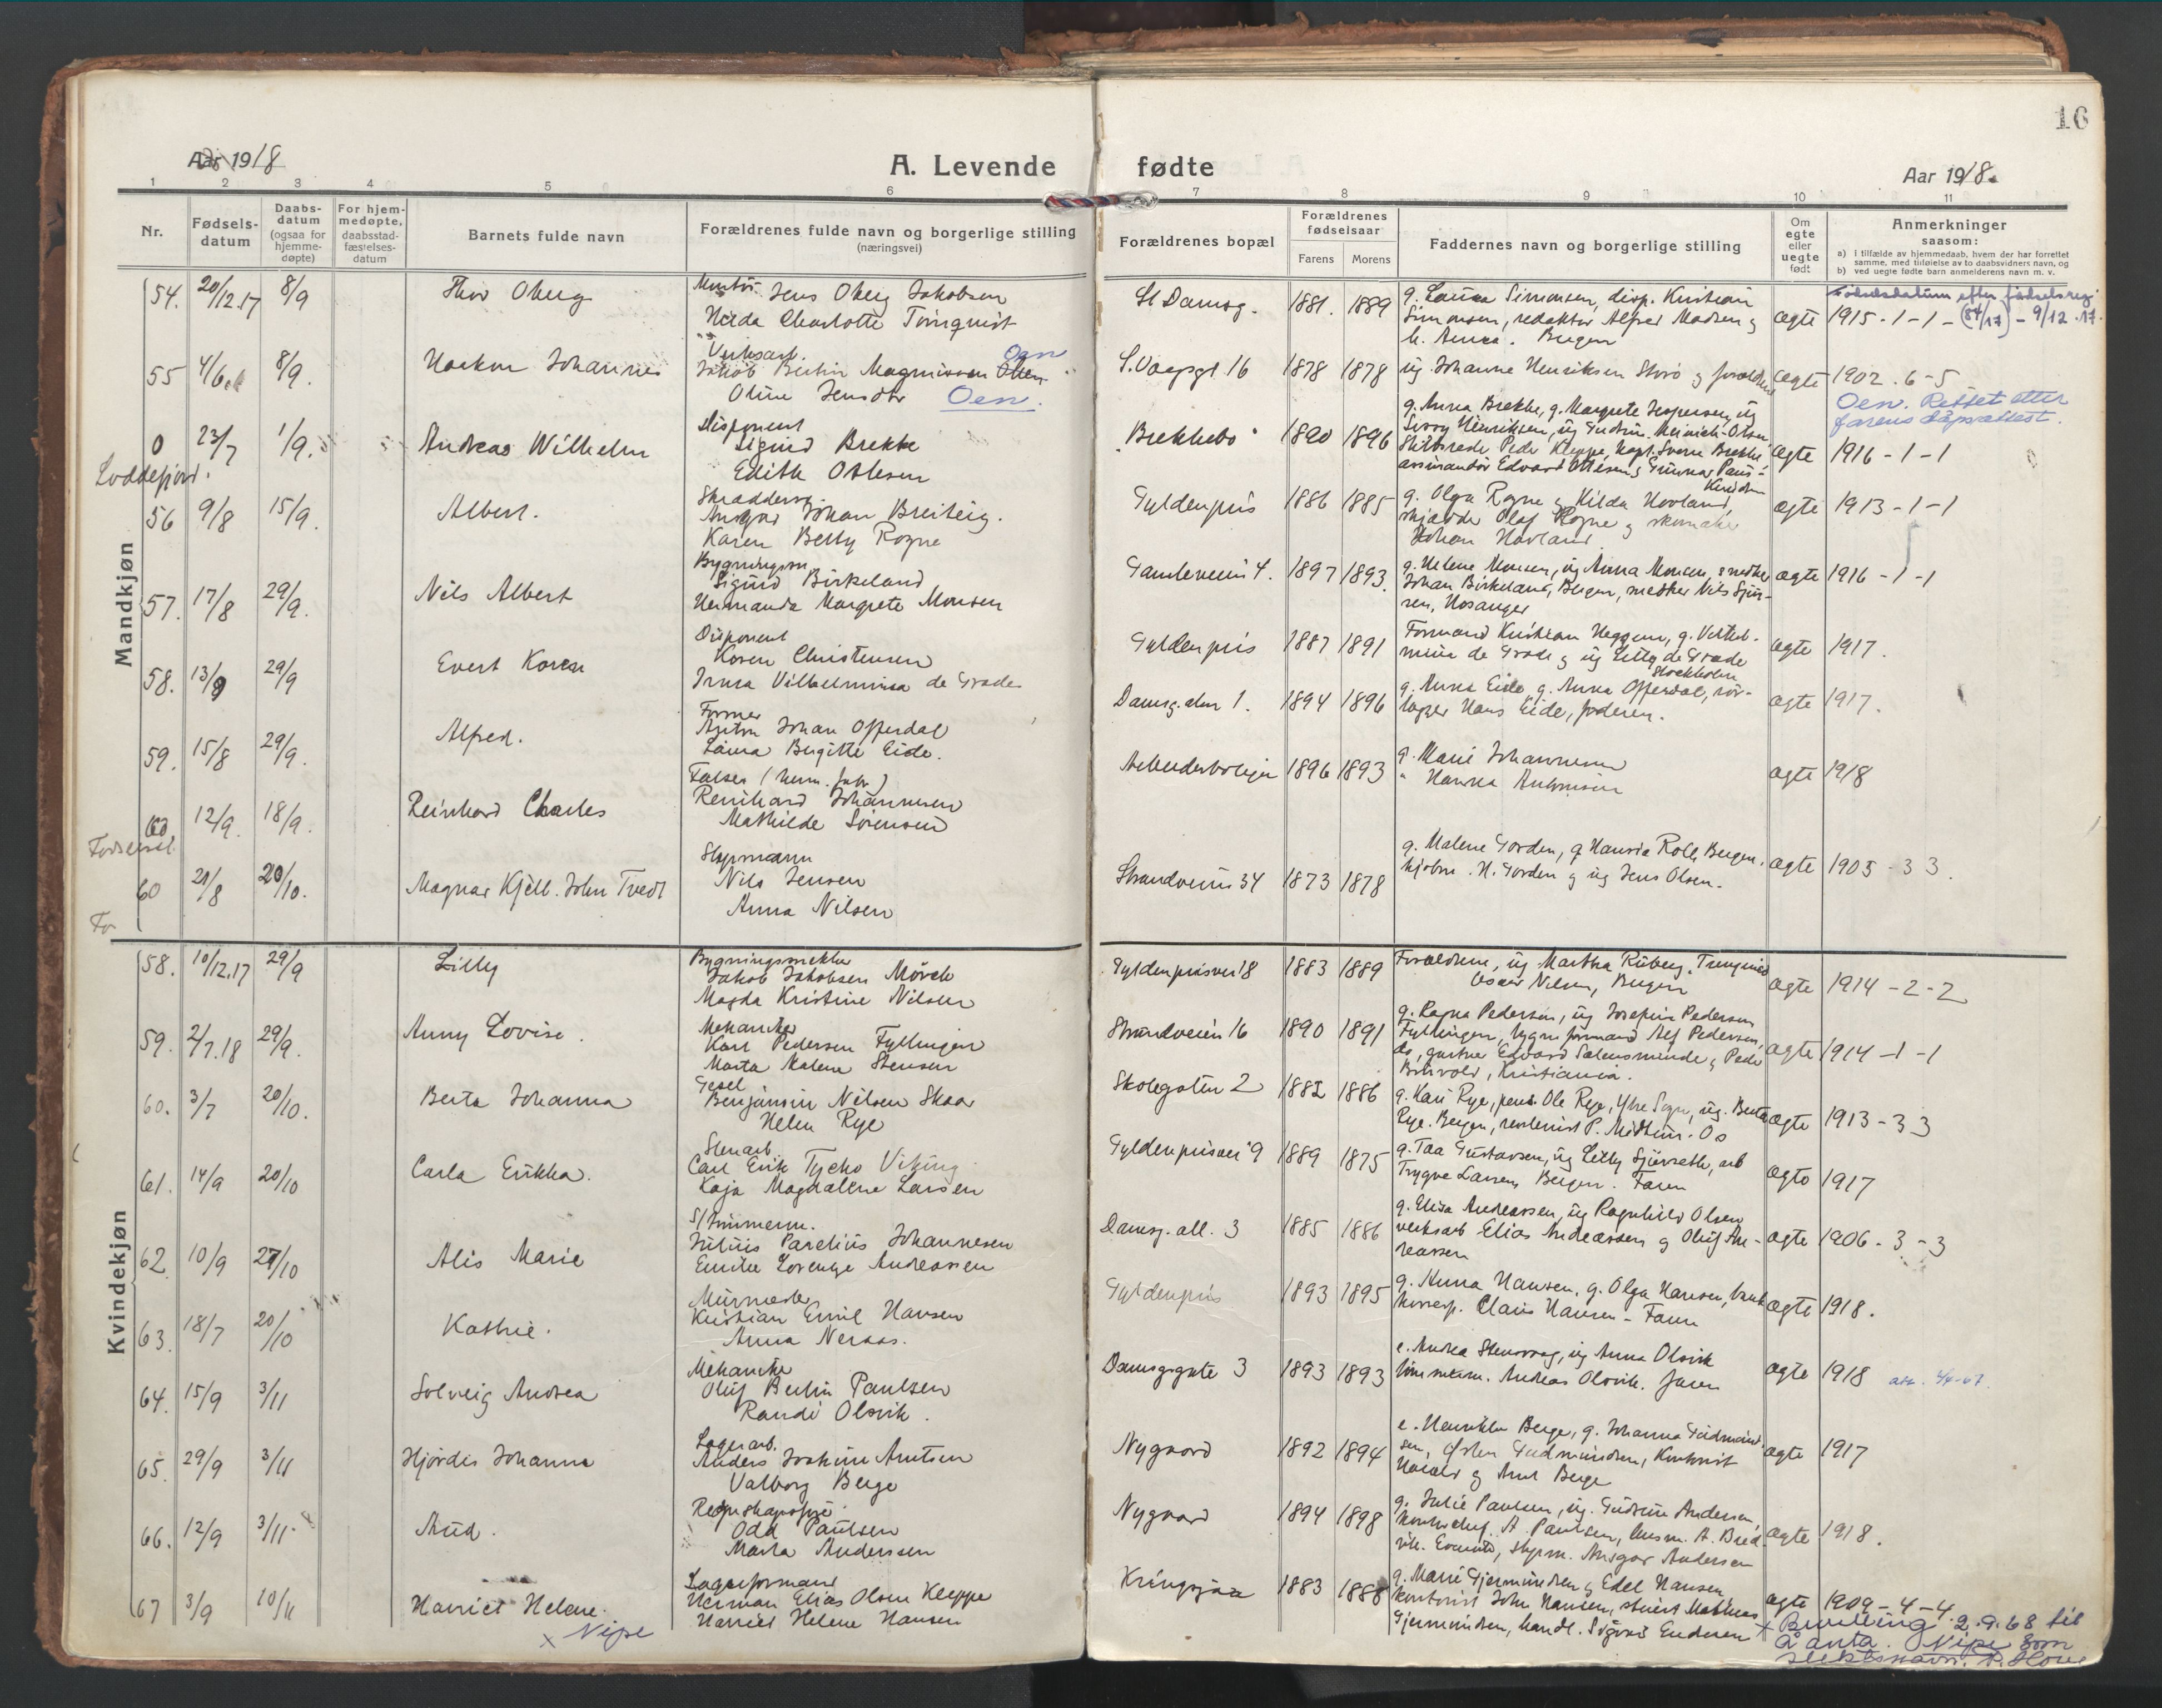 16
Aar 1918
A. Levende fødte
Aar 1918.
1 2 3 4 5 6 7 8 9 10 11
Nr.
Fødsels-
datum
Daabs-
datum
(ogsaa for
hjemme-
døpte)
For hjem-
medøpte,
daabsstad-
fæstelses-
datum
Barnets fulde navn
Forældrenes fulde navn og borgerlige stilling
(næringsvei)
Forældrenes bopæl
Forældrenes
fødselsaar
Farens Morens
Faddernes navn og borgerlige stilling
Om
egte
eller
uegte
født
Anmerkninger
saasom:
a) I tilfælde av hjemmedaab, hvem der har forrettet
samme, med tilføielse av to daabsvidners navn, og
b) ved uegte fødte barn anmelderens navn m. v.
Mandkjøn
54. 20/12.17 8/9 Thor Oberg
Montør Jens Oberg Jakobsen
Hilda Charlotte Törnquist
St Damsg. 1881. 1889
g. Laura Simonsen, disp. Kristian
Simonsen, redaktør Alfred Madsen g
h. Anna. Bergen
ægte 1915-1-1-
Fødselsdatum efter fødselsreg.
(84/17) - 9/12.17.
55 4/6 8/9. Haakon Johannes
Verksarb.
Jakob Bertin Magnussen Oen
Oline Jensdtr Oen.
S. Vaagsgt 16 1878 1878
ug. Johanne Henriksen Storø g forældrene
ægte 1902.6-5
Oen. Rettet etter
farens dåpsattest.
0 23/7 1/9. Andreas Wilhelm
Loddefjord.
Disponent
Sigurd Brekke
Edith Ottesen
Brekkebo 1890 1896
g. Anna Brekke, g. Margrete Jespersen, ug
Sissy Henriksen, ug Gudrun Heinrich-Olsen,
Skibsreder Peder Kleppe, kapt. Sverre Brekke
assurandør Edvard Ottesen g Gunnar Paus-
ægte 1916-1-1
56 9/8 15/9. Albert.
Skræddersv.
Ansgar Johan Breiteig.
Karen Betty Rogne
Gyldenpris 1886 1885
g. Olga Rogne g Hilda Hovland,
Olaf Rogne g skomaker
Johan Hovland
ægte 1913-1-1
57. 17/8 29/9. Nils Albert
Bygningssn.
Sigurd Birkeland
Hermanda Margrete Monsen
Gamleveien 4. 1897 1893.
g. Helene Monsen, ug Anna Monsen, snedker
Johan Birkeland, Bergen, snedker Nils Sjur-
sen, Hosanger
ægte 1916-1-1
58. 13/9 29/9 Evert Koren
Disponent
Koren Christensen
Irma Vilhelmina de Grade
Gyldenpris 1887 1891
Formand Kristian Heggum, g. Vilhel-
mina de Grade g ug Letty de Grade
Stockholm
ægte 1917.
59. 15/8 29/9. Alfred.
Former
Anton Johan Offerdal
Laura Birgitte Eide.
Damsg. alm 1. 1894 1896
g. Anna Eide, g. Anna Offerdal, rør-
lægger Hans Eide, faderen.
ægte 1917.
60. 12/9. 18/9. Reinhard Charles
Falser (herm. fabr.)
Reinhard Johannesen
Mathilde Sørensen
Arbeiderboliger 1896 1893
g. Marie Johannesen
" Hanna Antonsen
ægte 1918
60 21/8 20/10. Magnar Kjell. John Tvedt
Slepmann
Nils Jensen
Anna Nilsen
Strandveien 34 1873 1878
g. Malene Gorden, g Hansia Roll, Bergen,
kjøbm. H. Gorden g ug Jens Olsen.
ægte 1905-3 3.
Kvindekjøn
58. 10/12.17 29/9 Lilly
Bygningssnekker
Jakob Jakobsen Mørch
Magda Kristine Nilsen
Gyldenprisvei 18 1883 1889
Forældrene, ug Martha Ruberg, Trengereid
Oscar Nilsen, Bergen
ægte 1914-2-2
59. 2/7.18 29/9. Anny Lovise.
Mekaniker
Karl Pedersen Fyllingen
Marta Malene Stensen
Strandveien 16 1890 1891
g. Ragna Pedersen, ug Josefine Pedersen
Fyllingen, bygn. formand Alf Pedersen,
do, gartner Edvard Salensminde g Peder
Kristiania.
ægte 1914-1-1
60. 3/7 20/10. Berta Johanna
Benjamin Nilsen Skaar
Helen Rye
Skolegaten 2 1882 1886
g. Kari Rye, pens. Ole Rye, Ytre Sogn, ug. Berta
Rye. Bergen, P. Midttun. Os
ægte 1913-3 3
61. 14/9 20/10 Carla Erikka.
Stenarb.
Carl Erik Tycho Viking
Kaja Magdalene Larsen
Gyldenprisvei 9 1889 1875
g. Taa Gustavsen, ug Letty Sjursæth, arb
Trygve Larsen, Bergen. Faren
ægte 1917
62. 10/9 27/10 Alis Marie
S/Tømmerm.
Julius Parelius Johannesen
Emilie Lorentze Andreassen
Damsg. all. 3 1885 1886
g. Elisa Andreassen, ug Ragnhild Olsen
verksarb Elias Andreassen g Oluf An-
reassen
ægte 1906-3-3
63. 18/7 20/10 Kathie.
Murmester
Kristian Emil Hansen
Anna Neraas.
Gyldenpris 1893 1895
g. Anna Hansen, g. Olga Hansen, bank
korresp. Claus Hansen - Faren
ægte 1918.
64. 15/9 3/11 Solveig Andrea
Mekaniker
Oluf Bertin Paulsen
Randi Olsvik.
Damsgsgate 3 1893 1893
e. Andrea Stensvaag, ug Anna Olsvik
tømmerm. Andreas Olsvik. Faren
ægte 1918
65. 29/9 3/11 Hjørdis Johanna
Lagerarb.
Anders Joakim Arntsen
Valborg Berge
Nygaard 1892 1894
e. Henrikke Berge, g. Johanna Gudmund-
sen, Gudmundsen, Kontorist
Harald g Arne Berge
ægte 1917
66. 12/9 3/11 Aud.
Odd Paulsen
Marta Anderssen
Nygaard 1894 1898
g. Julie Paulsen, ug. Gudrun Andersen,
kontorchef. A. Paulsen, A. Bred-
vik. skpm. Ansgar Andersen
ægte 1918.
67 3/9 10/11 Harriet Helene.
x Nipe
Lagerformand
Herman Elias Olsen Kleppe
Harriet Helene Hansen
Kringsjaa 1883 1888
g. Marie Gjermundsen g Edel Hansen
kontorist John Hansen, stuert Mathias
Gjermundsen, handl. Sigvard Endresen
ægte 1909-4-4.
x Bevilling 2.9.68 til
å anta Nipe som
slektsnavn.